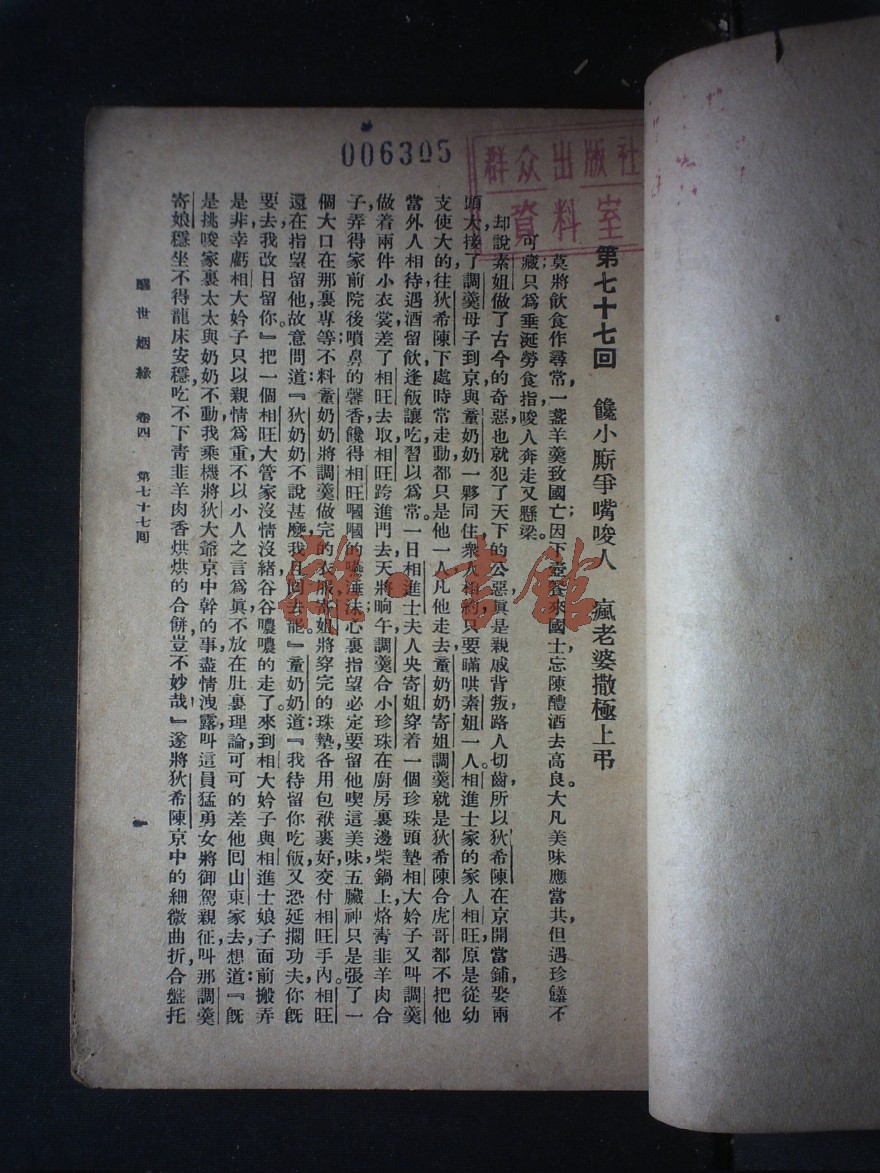 006305
群众出版社
資料室
第七十七回　饞小厮爭嘴唆人　瘋老婆撒極上弔
莫將飲食作尋常，一盞羊羹致國亡；因下壺飧來國士，忘陳醴酒去高良。大凡美味應當共，但遇珍饈不
可藏；只爲垂涎勞食指，唆人奔走又懸梁。
却說素姐做了古今的奇惡，也就犯了天下的公惡，眞是親戚背叛，路人切齒，所以狄希陳在京開當鋪，娶兩
頭大，接了調羹母子到京，與童奶奶一夥同住，衆人相約，只要瞞哄素姐一人。相進士家的家人相旺，原是從幼
支使大的，往狄希陳下處時常走動，都只是他一人，凡他走去，童奶奶寄姐調羹就是狄希陳合虎哥都不把他
當外人相待，遇酒留飲，逢飯讓吃，習以爲常。一日，相進士夫人央寄姐穿着一個珍珠頭墊，相大妗子又叫調羹
做着兩件小衣裳，差了相旺去取，相旺跨進門去，天將晌午，調羹合小珍珠在廚房裏邊柴鍋上，烙靑韭羊肉合
子，弄得家前院後噴鼻的馨香，饞得相旺嘓嘓的嚥唾沫，心裏指望必定要留他喫這美味，五臟神只是張了一
個大口在那裏專等；不料童奶奶將調羹做完的衣服，寄姐將穿完的珠墊，各用包袱裹好，交付相旺手內。相旺
還在指望留他，故意問道：『狄奶奶不說甚麽，我且回去罷。』童奶奶道：『我待留你吃飯，又恐延擱功夫，你旣
要去，我改日留你。』把一個相旺大管家沒情沒緒，谷谷噥噥的走了。來到相大妗子與相進士娘子面前，搬弄
是非，幸虧相大妗子只以親情爲重，不以小人之言爲眞，不放在肚裏理論。可可的差他回山東家去，想道：『旣
是挑唆家裏太太與奶奶不動，我乘機將狄大爺京中幹的事，盡情洩露，叫這員猛勇女將御駕親征，叫那調羹
寄娘穩坐不得龍床，安穩吃不下靑韭羊肉香烘烘的合餅，豈不妙哉』遂將狄希陳京中的細微曲折，合盤托
醒世姻緣　卷四　第七十七回
一
雜·書館